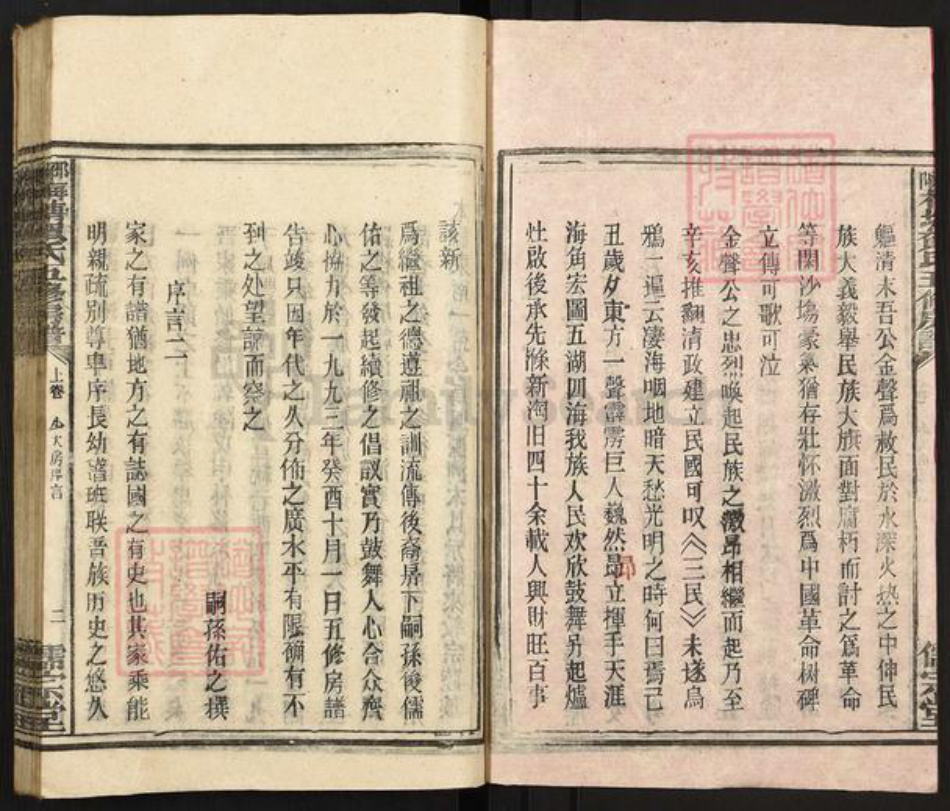 軀清末吾公金聲爲救民於水深火热之中伸民
族大義毅舉民族大旗面對腐朽而討之爲革命
等閑沙塲豪氣猶存壯怀激烈爲中國革命树碑
立傳可歌可泣
金聲公之忠烈唤起民族之激昂相繼而起乃至
辛亥推翻清政建立民國可叹《三民》未遂烏
鴉一遍云凄海咽地暗天愁光明之時何曰焉己
丑歲夕東方一聲霹雳巨人巍然昂立揮手天涯
海角宏圖五湖四海我族人民欢欣鼓舞另起爐
灶啟後承先滌新淘旧四十余載人興財旺百事
儒宗堂
該新
爲繼祖之德遵祖之訓流傳後裔昇下嗣孫後儒
佑之等發起續修之倡議實乃鼓舞人心合众齊
心協力於一九九三年癸酉十月一日五修房譜
告竣只因年代之久分佈之廣水平有限確有不
到之处望諒而察之
嗣孫佑之撰
序言二
家之有譜猶地方之有誌國之有史也其家乘能
明親疏别尊卑序長幼譜班联吾族历史之悠久
上卷
大房序言
二
儒宗堂